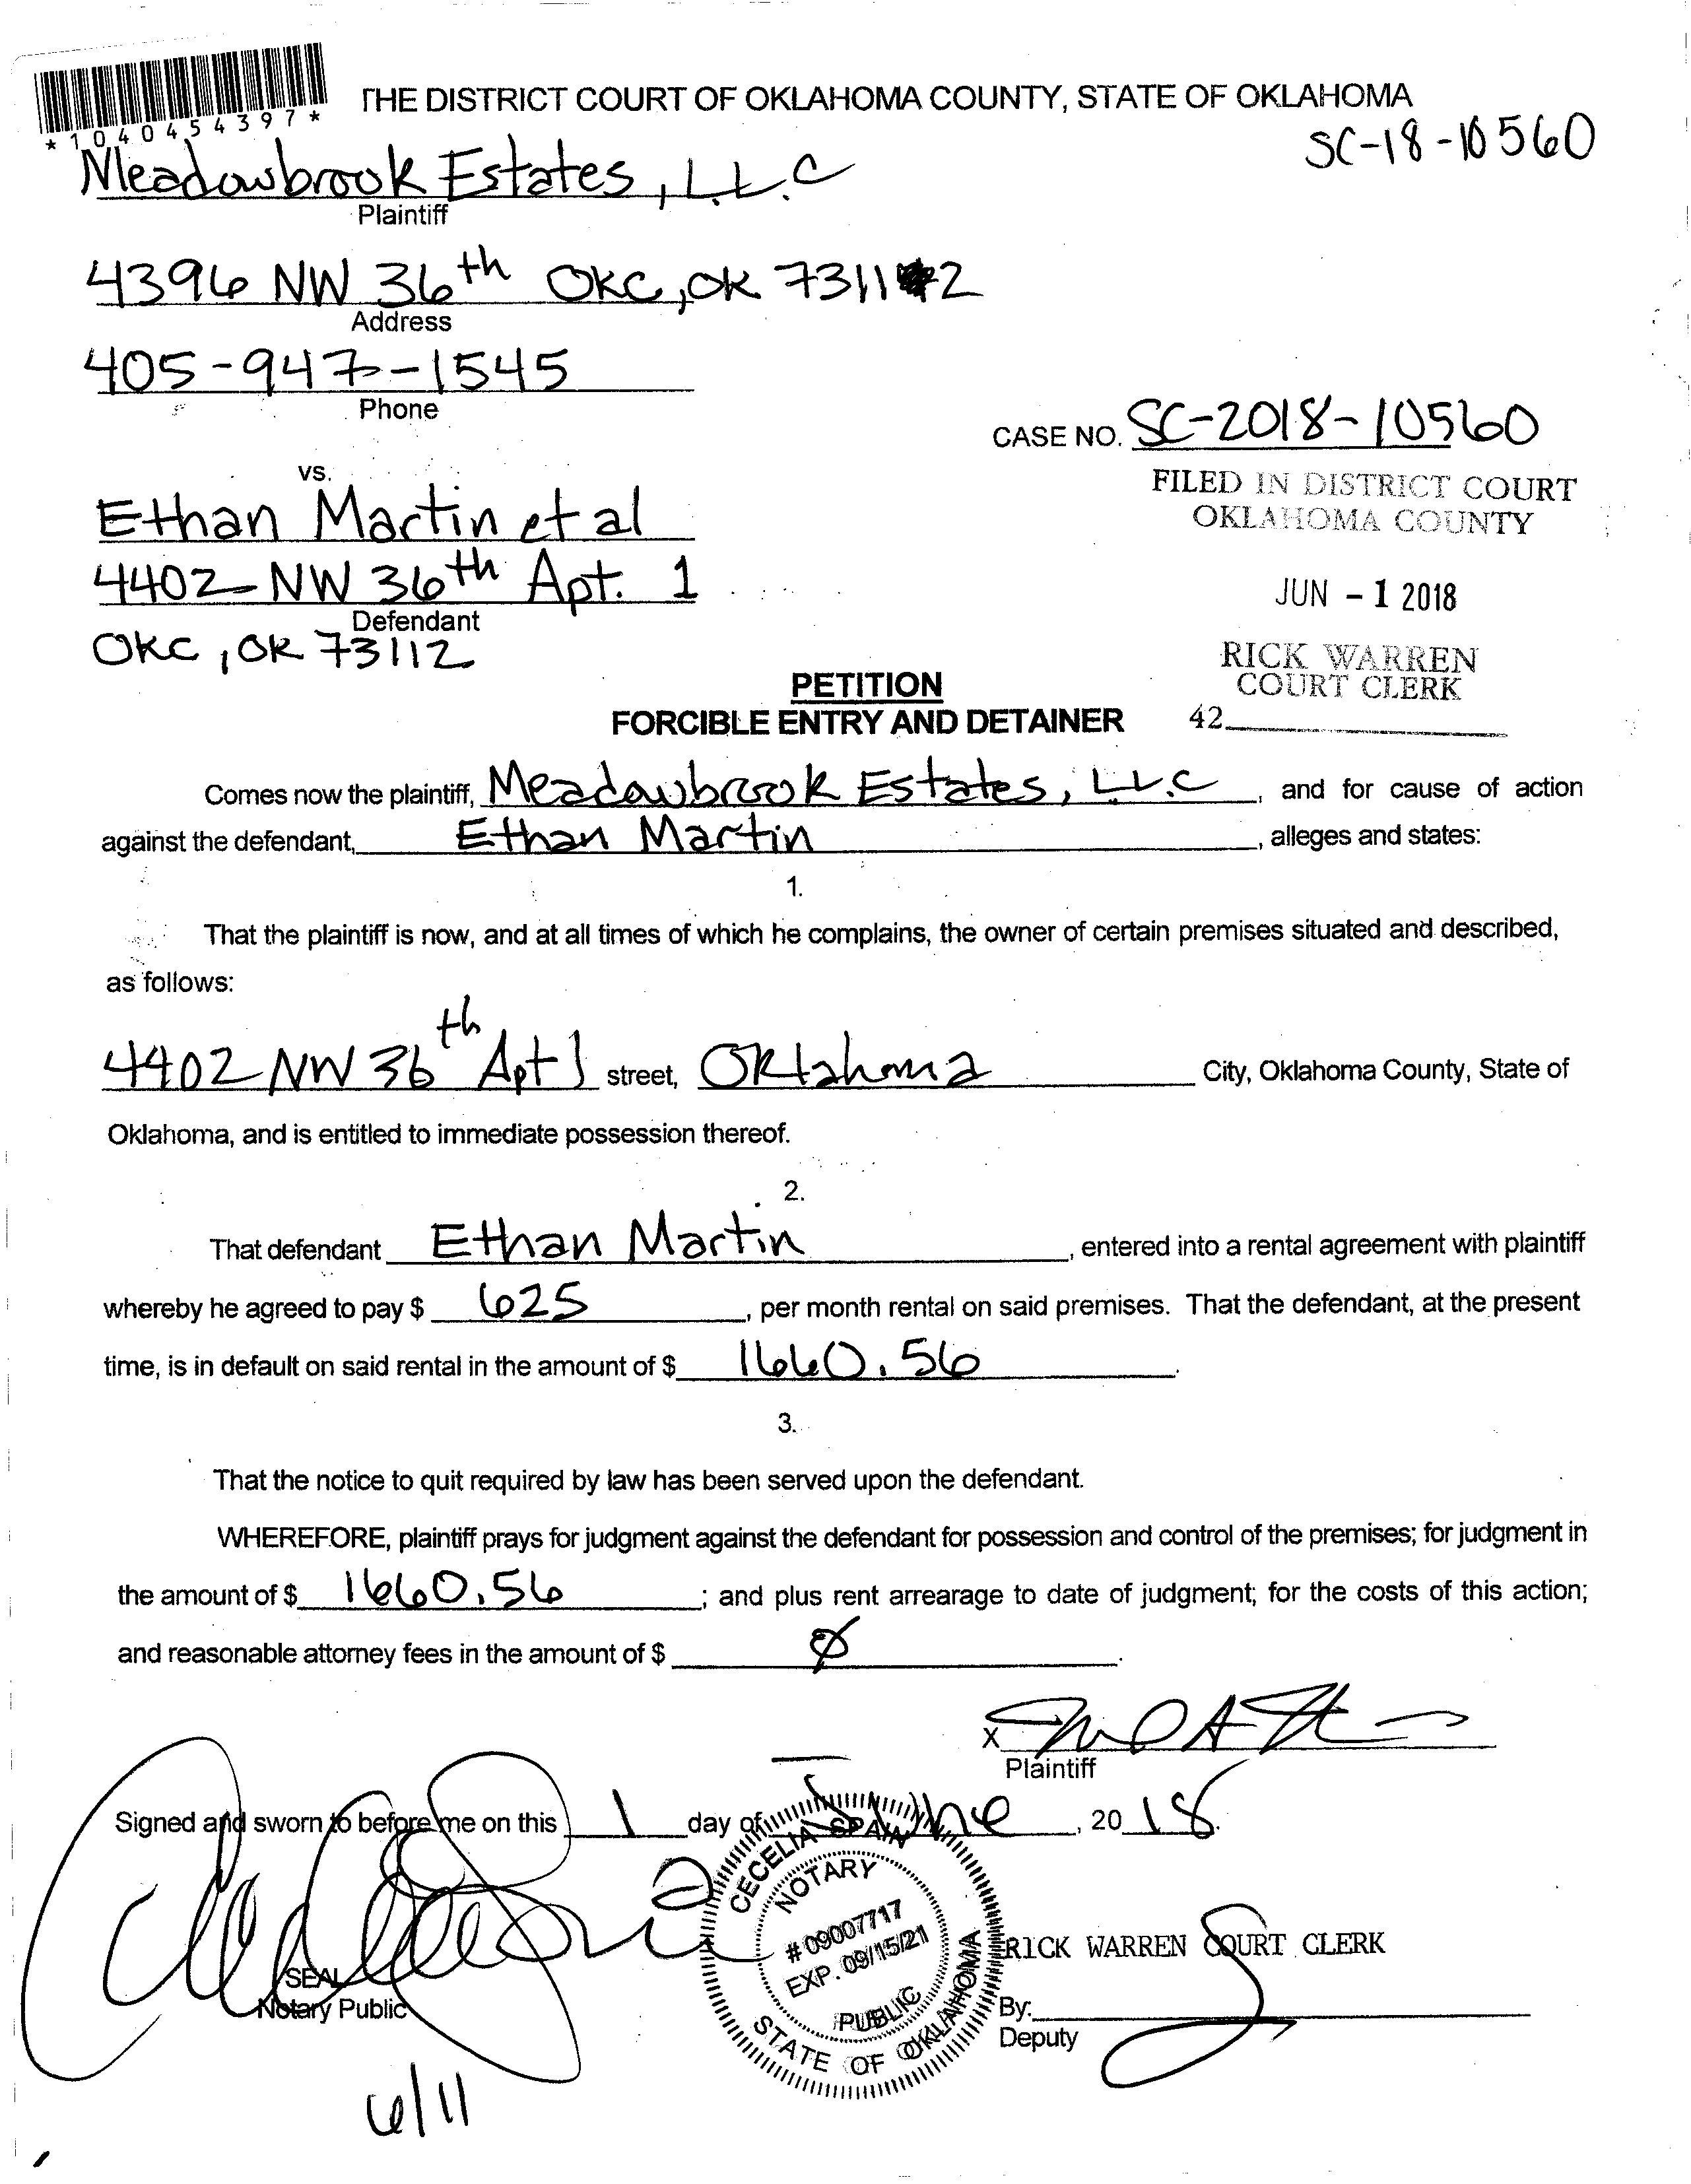 *1040454397*
THE DISTRICT COURT OF OKLAHOMA COUNTY, STATE OF OKLAHOMA
SC-18-10560
Meadowbrook Estates, L.L.C
Plaintiff
4396 NW 36th OKC, OK 73112
Address
405-947-1545
Phone
CASE NO. SC-2018-10560
vs.
FILED IN DISTRICT COURT
OKLAHOMA COUNTY
Ethan Martin et al
4402 NW 36th Apt. 1
JUN - 1 2018
Defendant
OKC, OK 73112
RICK WARREN
COURT CLERK
42
PETITION
FORCIBLE ENTRY AND DETAINER
Comes now the plaintiff, Meadowbrook Estates, L.L.C, and for cause of action
against the defendant, Ethan Martin, alleges and states:
1.
That the plaintiff is now, and at all times of which he complains, the owner of certain premises situated and described,
as follows:
4402 NW 36th Apt 1 street, Oklahoma City, Oklahoma County, State of
Oklahoma, and is entitled to immediate possession thereof.
2.
That defendant Ethan Martin, entered into a rental agreement with plaintiff
whereby he agreed to pay $ 625, per month rental on said premises. That the defendant, at the present
time, is in default on said rental in the amount of $ 1660.56.
3.
That the notice to quit required by law has been served upon the defendant.
WHEREFORE, plaintiff prays for judgment against the defendant for possession and control of the premises; for judgment in
the amount of $ 1660.56; and plus rent arrearage to date of judgment; for the costs of this action;
and reasonable attorney fees in the amount of $ Ø.
X
Plaintiff
Signed and sworn to before me on this 1 day of June, 2018.
CECELIA SPAIN
NOTARY
# 09007717
EXP. 09/15/21
PUBLIC
STATE OF OKLAHOMA
RICK WARREN COURT CLERK
SEAL
Notary Public
By:
Deputy
6/11